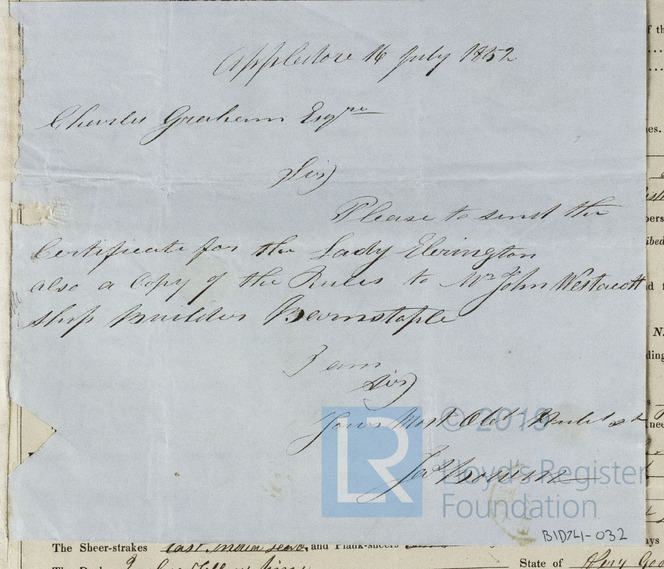 Appledore 16 July 1852
Charles Graham Esqre
Sir
Please to send the
Certificate for the Lady Ebrington
also a Copy of the Rules to Mr John Westacott
Ship Builder Barnstaple
I am
Sir
Yours Most Obdt Humbl St
© 2019
LR
Lloyd's Register
Foundation
BID74-032
The Sheer-strakes East India Teak and Plank-sheers
State of Very Good